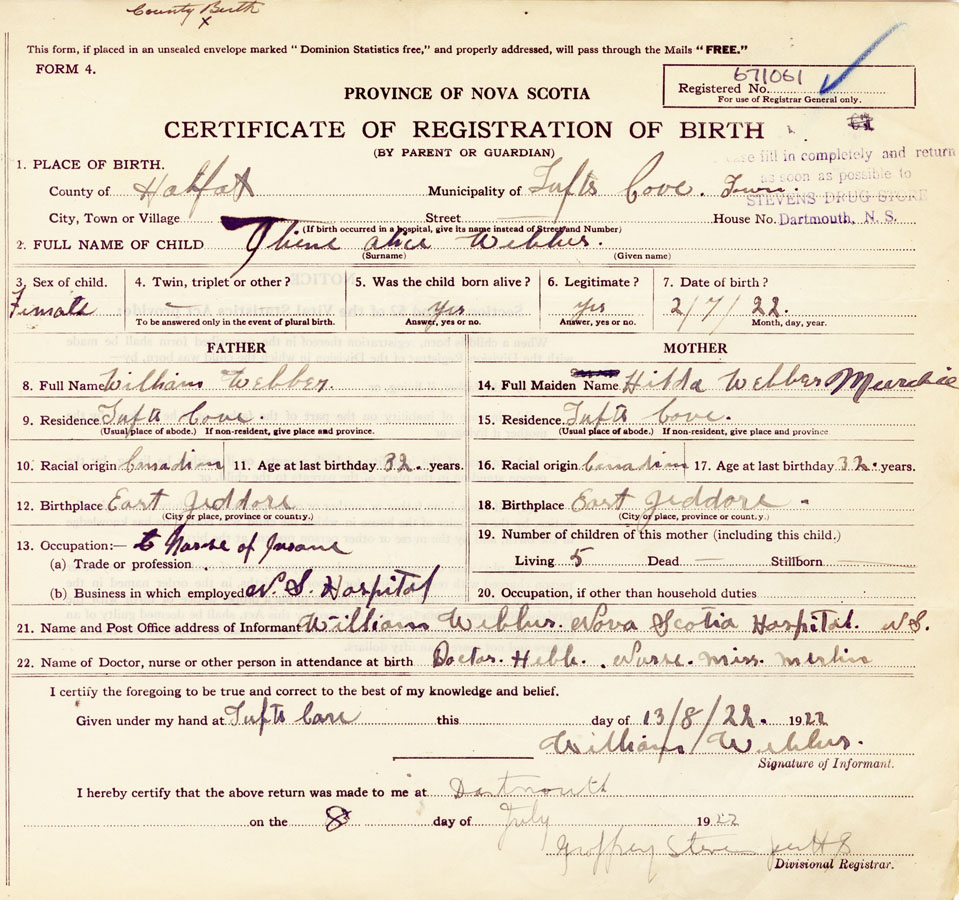 County Birth
x
This form, if placed in an unsealed envelope marked "Dominion Statistics free," and properly addressed, will pass through the Mails "FREE."
FORM 4.
671061
Registered No.
For use of Registrar General only.
PROVINCE OF NOVA SCOTIA
CERTIFICATE OF REGISTRATION OF BIRTH
(BY PARENT OR GUARDIAN)
fill in completely and return
as soon as possible to
STEVENS DRUG STORE
Dartmouth, N. S.
1. PLACE OF BIRTH.
County of Halfax Municipality of Tufts Cove. Town.
City, Town or Village Street House No.
(If birth occurred in a hospital, give its name instead of Street and Number)
2. FULL NAME OF CHILD alice Webber.
(Surname) (Given name)
3. Sex of child. 4. Twin, triplet or other? 5. Was the child born alive? 6. Legitimate? 7. Date of birth?
Female — yes yes 2/7/22.
To be answered only in the event of plural birth. Answer, yes or no. Answer, yes or no. Month, day, year.
FATHER MOTHER
8. Full Name William Webber. 14. Full Maiden Name Hilda Webber Murchie
9. Residence Tufts Cove. 15. Residence Tufts Cove.
(Usual place of abode.) If non-resident, give place and province. (Usual place of abode.) If non-resident, give place and province
10. Racial origin Canadian 11. Age at last birthday 32 years. 16. Racial origin Canadian 17. Age at last birthday 32. years.
12. Birthplace East Jeddore 18. Birthplace East Jeddore -
(City or place, province or country.) (City or place, province or country.)
13. Occupation:— Nurse of Insane 19. Number of children of this mother (including this child.)
(a) Trade or profession Living 5 Dead — Stillborn
(b) Business in which employed N. S. Hospital 20. Occupation, if other than household duties
21. Name and Post Office address of Informant William Webber. Nova Scotia Hospital. N S.
22. Name of Doctor, nurse or other person in attendance at birth Doctor. Hebb. Nurse. Miss. Merlin
I certify the foregoing to be true and correct to the best of my knowledge and belief.
Given under my hand at Tufts Cove this day of 13/8/22. 1922
William Webber.
Signature of Informant.
I hereby certify that the above return was made to me at Dartmouth
on the 8 day of July 1922
Geoffrey Stevens
Divisional Registrar.